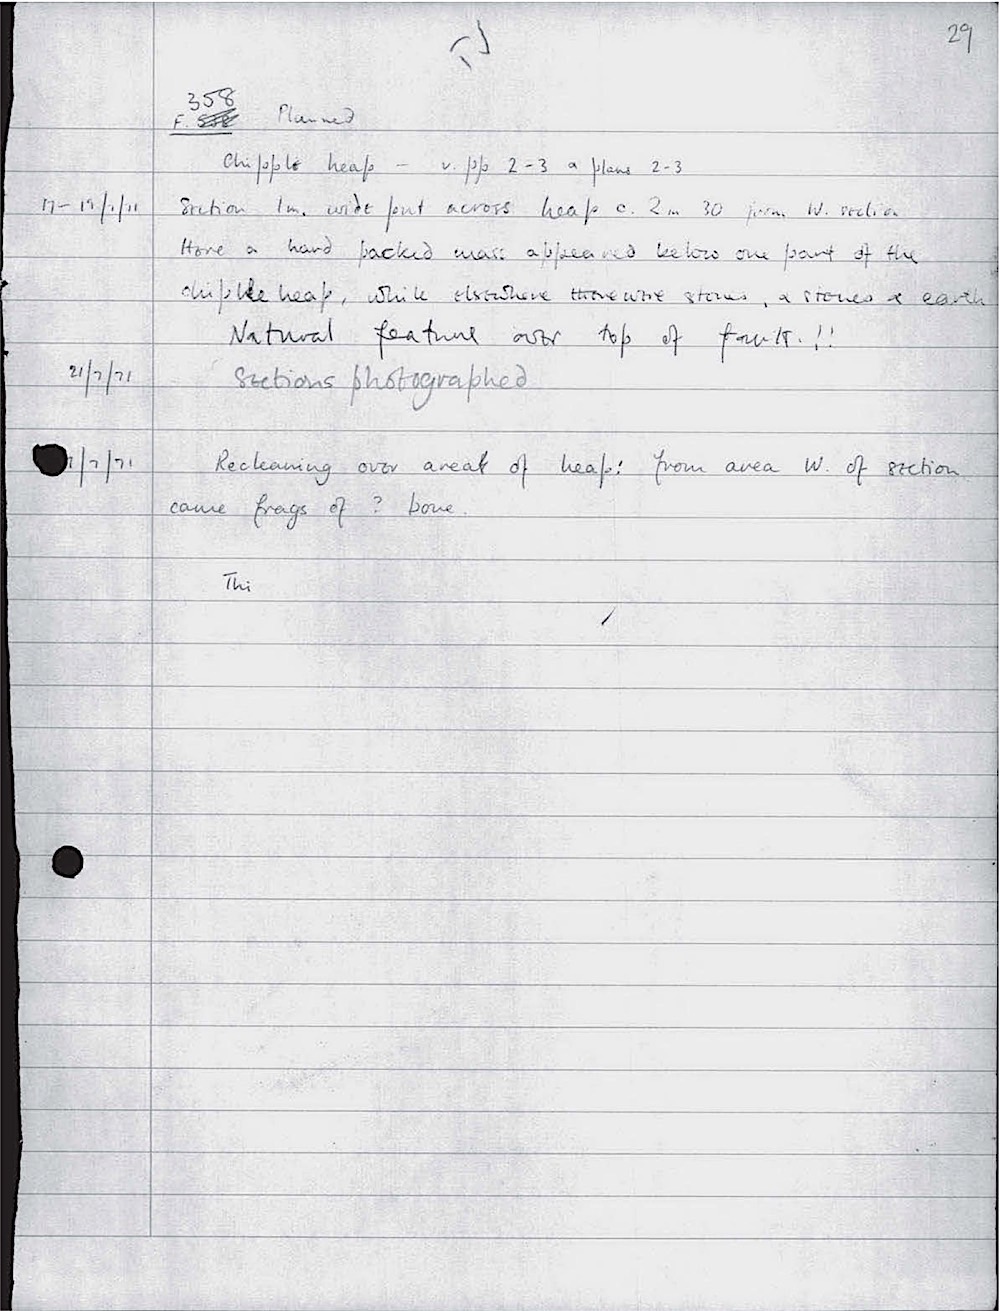 29
358
F. Planned
Chipple heap - v. pp 2-3 & plans 2-3
17-19/7/71 Section 1m. wide put across heap c. 2m 30 from W. section
Here a hard packed mass appeared below one part of the
chipple heap, while elsewhere there were stones, & stones & earth
Natural feature over top of fault.!!
21/7/71 Sections photographed
/7/71 Recleaning over area of heap: from area W. of section
came frags of ? bone.
Thi